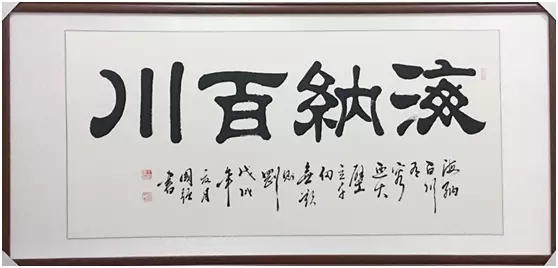 海納百川
海納
百川
有
容
迺大
壁
立千
仞
無欲
則
剛
戊戌
年
夏月
國強
書